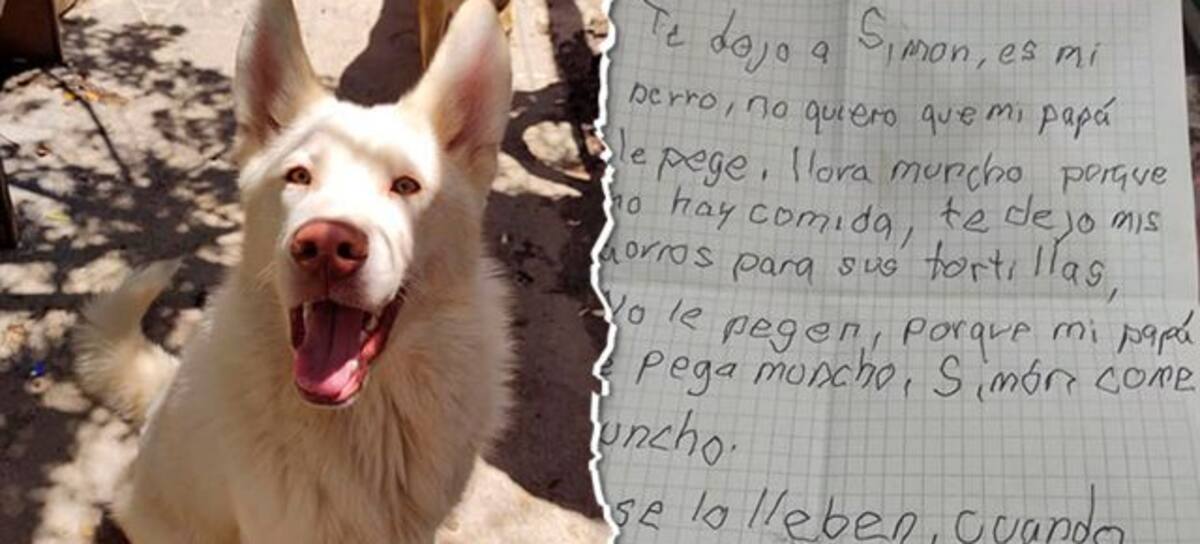 Te dejo a Simon, es mi
perro, no quiero que mi papá
le pege, llora muncho porque
no hay comida, te dejo mis
aorros para sus tortillas,
No le pegen, porque mi papá
pega muncho, Simón come
uncho.
se lo lleben, cuando